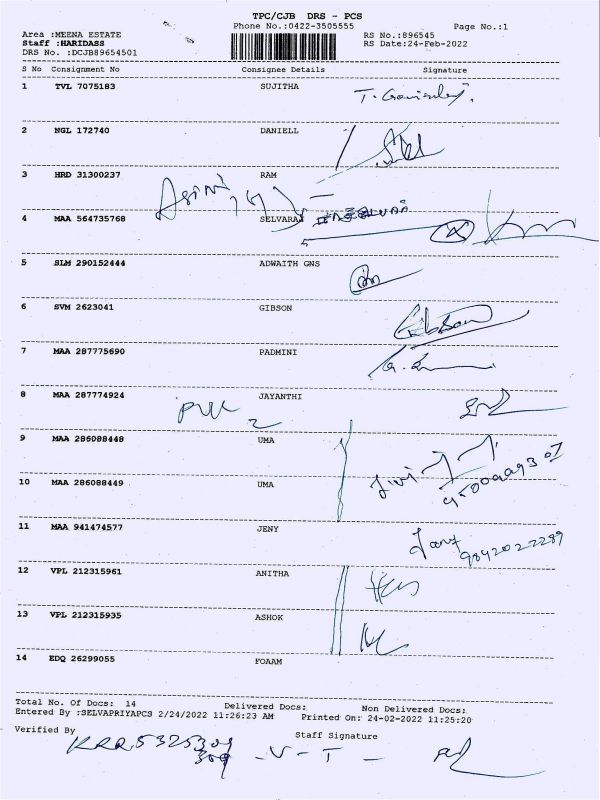 TPC/CJB DRS - PCS
Phone No.:0422-3505555
Page No.:1
Area :MEENA ESTATE
RS No.:896545
Staff :HARIDASS
RS Date:24-Feb-2022
DRS No. :DCJB89654501
S No Consignment No Consignee Details Signature
1 TVL 7075183 SUJITHA
2 NGL 172740 DANIELL
3 HRD 31300237 RAM
4 MAA 564735768 SELVARAJ
5 SLM 290152444 ADWAITH GNS
6 SVM 2623041 GIBSON
7 MAA 287775690 PADMINI
8 MAA 287774924 JAYANTHI
9 MAA 286088448 UMA
10 MAA 286088449 UMA
11 MAA 941474577 JENY
9842022289
12 VPL 212315961 ANITHA
13 VPL 212315935 ASHOK
14 EDQ 26299055 FOAAM
Total No. Of Docs: 14 Delivered Docs: Non Delivered Docs:
Entered By :SELVAPRIYAPCS 2/24/2022 11:26:23 AM Printed On: 24-02-2022 11:25:20
Verified By Staff Signature
- V - T -